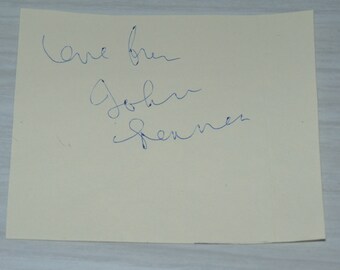 Love from
John
Lennon